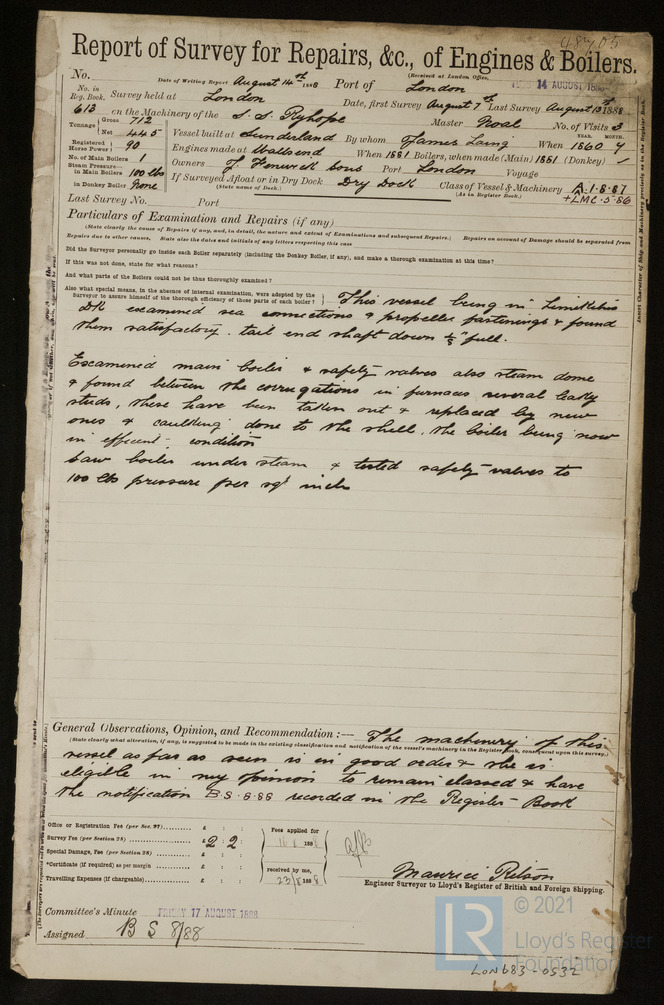 Report of Survey for Repairs, &c., of Engines & Boilers.
No. Date of Writing Report August 14th 1888 Port of London (Received at London Office, 14 AUGUST 1888
No. in Reg. Book. Survey held at London Date, first Survey August 7th Last Survey August 13th 1888
613 on the Machinery of the S.S. Ryhope Master Noal No. of Visits 3
Tonnage Gross 712 Net 445 Vessel built at Sunderland By whom James Laing When YEAR. 1860 MONTH. 7
Registered Horse Power 90 Engines made at Wallsend When 1881 Boilers, when made (Main) 1881 (Donkey) /
No. of Main Boilers 1 Owners J Fenwick Sons Port London Voyage
Steam Pressure— in Main Boilers 100 lbs If Surveyed Afloat or in Dry Dock Dry Dock Class of Vessel & Machinery A.1.8.87
in Donkey Boiler None (State name of Dock.) (As in Register Book.) +LMC.5.86
Last Survey No. Port
Particulars of Examination and Repairs (if any)
(State clearly the cause of Repairs if any, and, in detail, the nature and extent of Examinations and subsequent Repairs.) Repairs on account of Damage should be separated from
Repairs due to other causes. State also the dates and initials of any letters respecting this case
Did the Surveyor personally go inside each Boiler separately (including the Donkey Boiler, if any), and make a thorough examination at this time?
If this was not done, state for what reasons?
And what parts of the Boilers could not be thus thoroughly examined?
Also what special means, in the absence of internal examination, were adopted by the
Surveyor to assure himself of the thorough efficiency of those parts of each boiler? This vessel being in Limekilns
DK examined sea connections & propeller fastenings & found
them satisfactory. tail end shaft down full.
Examined main boiler & safety valves also steam dome
& found between the corrugations in furnaces several leaky
studs, these have been taken out & replaced by new
ones & caulking done to the shell, the boiler being now
in efficent condition
Saw boiler under steam & tested safety valves to
100 lbs pressure per sqr inch
General Observations, Opinion, and Recommendation :— The machinery of this
(State clearly what alteration, if any, is suggested to be made in the existing classification and notification of the vessel's machinery in the Register Book, consequent upon this survey.)
vessel as far as seen is in good order & she is
eligible in my opinion to remain classed & have
the notification B.S. 8.88 recorded in the Register Book
Office or Registration Fee (per Sec. 27) £ : :
Survey Fee (per Section 28) £ 2 : 2 :
Special Damage, Fee (per Section 28) £ : :
*Certificate (if required) as per margin £ : :
Travelling Expenses (if chargeable) £ : :
Fees applied for
188
received by me,
23/8 1888
Maurice Rilson
Engineer Surveyor to Lloyd's Register of British and Foreign Shipping.
Committee's Minute FRIDAY 17 AUGUST 1888
Assigned B S 8/88
LR © 2021
Lloyd's Register
Foundation
LON683-0532